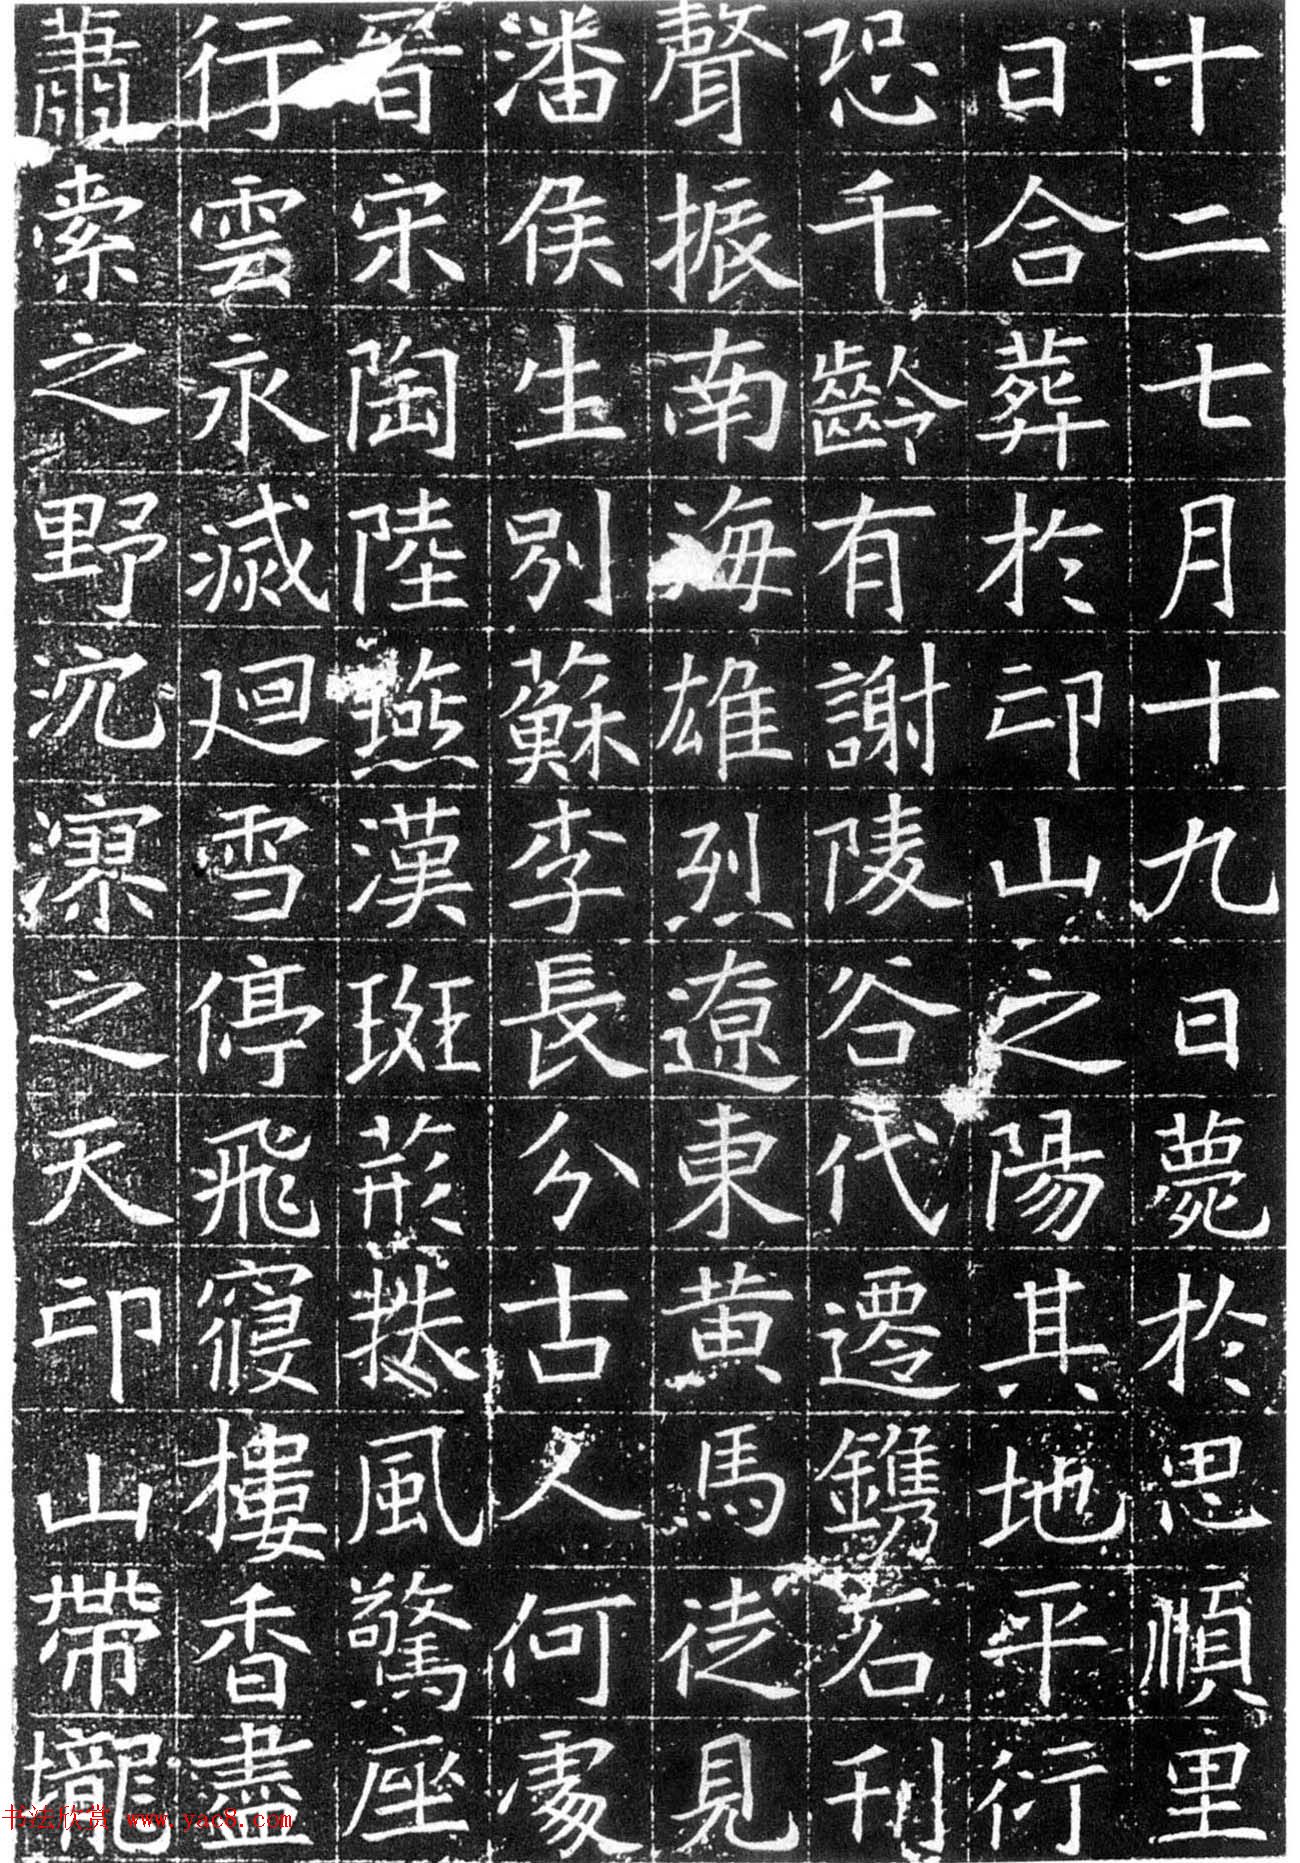 十二七月十九日薨於思順里
日合葬於邙山之陽其地平衍
恐千齡有謝陵谷代遷鐫石刊
聲振南海雄烈遼東黃馬徒見
潘侯生別蘇李長分古人何處
晉宋陶陸燕漢班荊扶風驚座
行雲永滅迴雪停飛寢樓香盡
蕭索之野沉之天邙山帶壠
书法欣赏 www.yac8.com